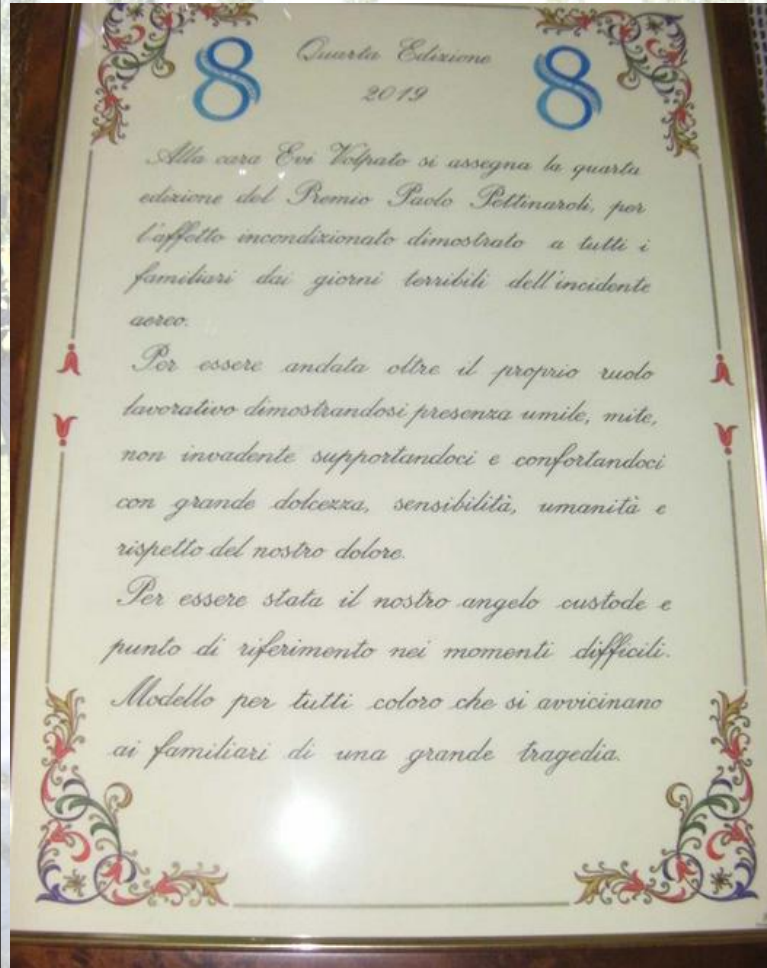 Quarta Edizione
2019
Alla cara Evi Volpato si assegna la quarta
edizione del Premio Paolo Pettinaroli, per
l'affetto incondizionato dimostrato a tutti i
familiari dai giorni terribili dell'incidente
aereo.
Per essere andata oltre il proprio ruolo
lavorativo dimostrandosi presenza umile, mite,
non invadente supportandoci e confortandoci
con grande dolcezza, sensibilità, umanità e
rispetto del nostro dolore.
Per essere stata il nostro angelo custode e
punto di riferimento nei momenti difficili.
Modello per tutti coloro che si avvicinano
ai familiari di una grande tragedia.